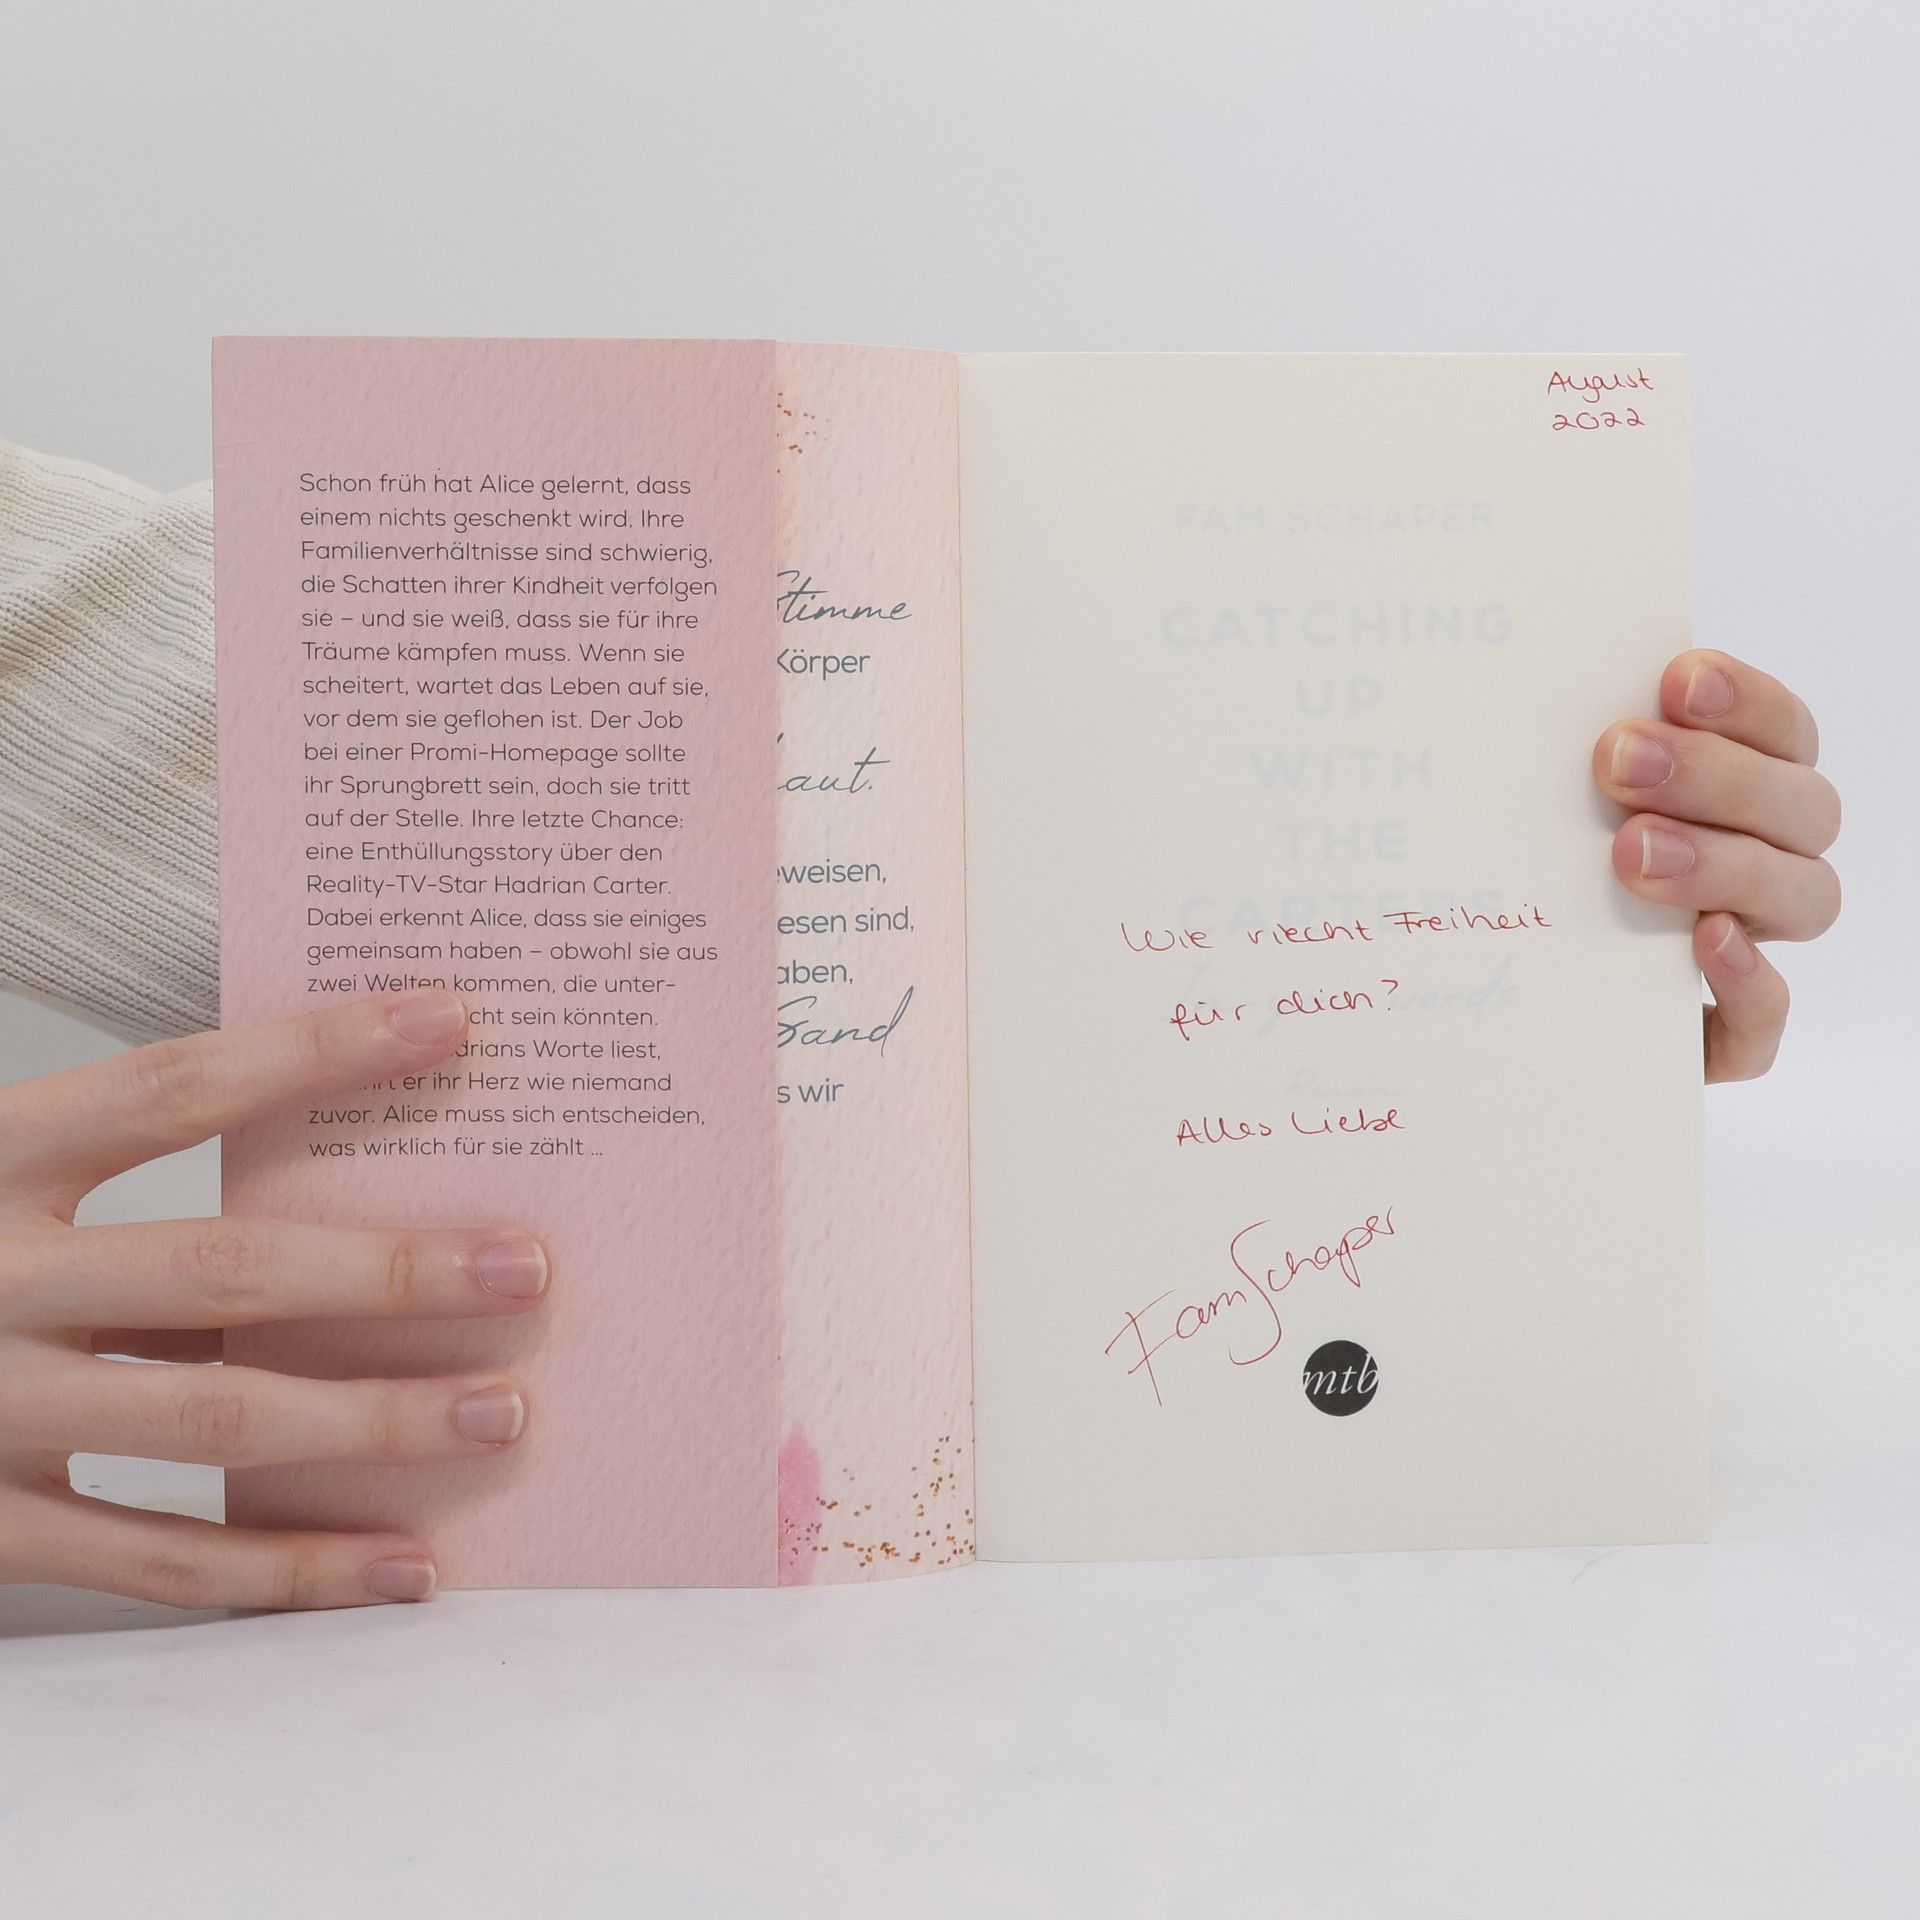 Schon früh hat Alice gelernt, dass
einem nichts geschenkt wird. Ihre
Familienverhältnisse sind schwierig,
die Schatten ihrer Kindheit verfolgen
sie – und sie weiß, dass sie für ihre
Träume kämpfen muss. Wenn sie
scheitert, wartet das Leben auf sie,
vor dem sie geflohen ist. Der Job
bei einer Promi-Homepage sollte
ihr Sprungbrett sein, doch sie tritt
auf der Stelle. Ihre letzte Chance:
eine Enthüllungsstory über den
Reality-TV-Star Hadrian Carter.
Dabei erkennt Alice, dass sie einiges
gemeinsam haben – obwohl sie aus
zwei Welten kommen, die unter-
cht sein könnten.
drians Worte liest,
er ihr Herz wie niemand
zuvor. Alice muss sich entscheiden,
was wirklich für sie zählt ...
Stimme
Körper
aut.
weisen,
esen sind,
aben,
Sand
s wir
August
2022
FAM SCHAPER
CATCHING
UP
WITH
THE
CARTERS
words
Roman
Wie riecht Freiheit
für dich?
Alles Liebe
Fam Schaper
mtb